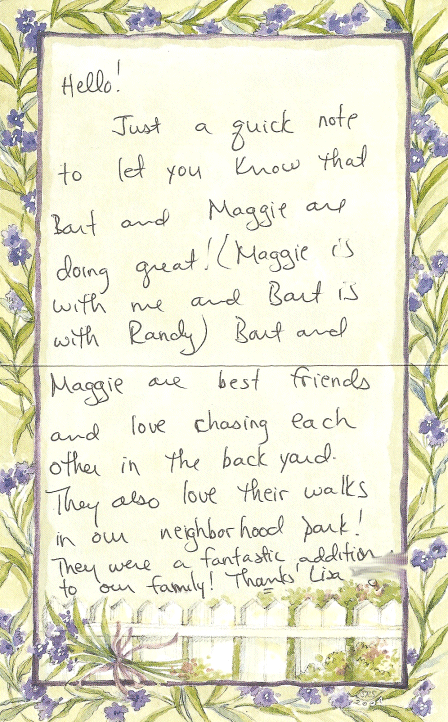 Hello!
Just a quick note
to let you know that
Bart and Maggie are
doing great! (Maggie is
with me and Bart is
with Randy) Bart and
Maggie are best friends
and love chasing each
other in the back yard.
They also love their walks
in our neighborhood park!
They were a fantastic addition
to our family! Thanks, Lisa